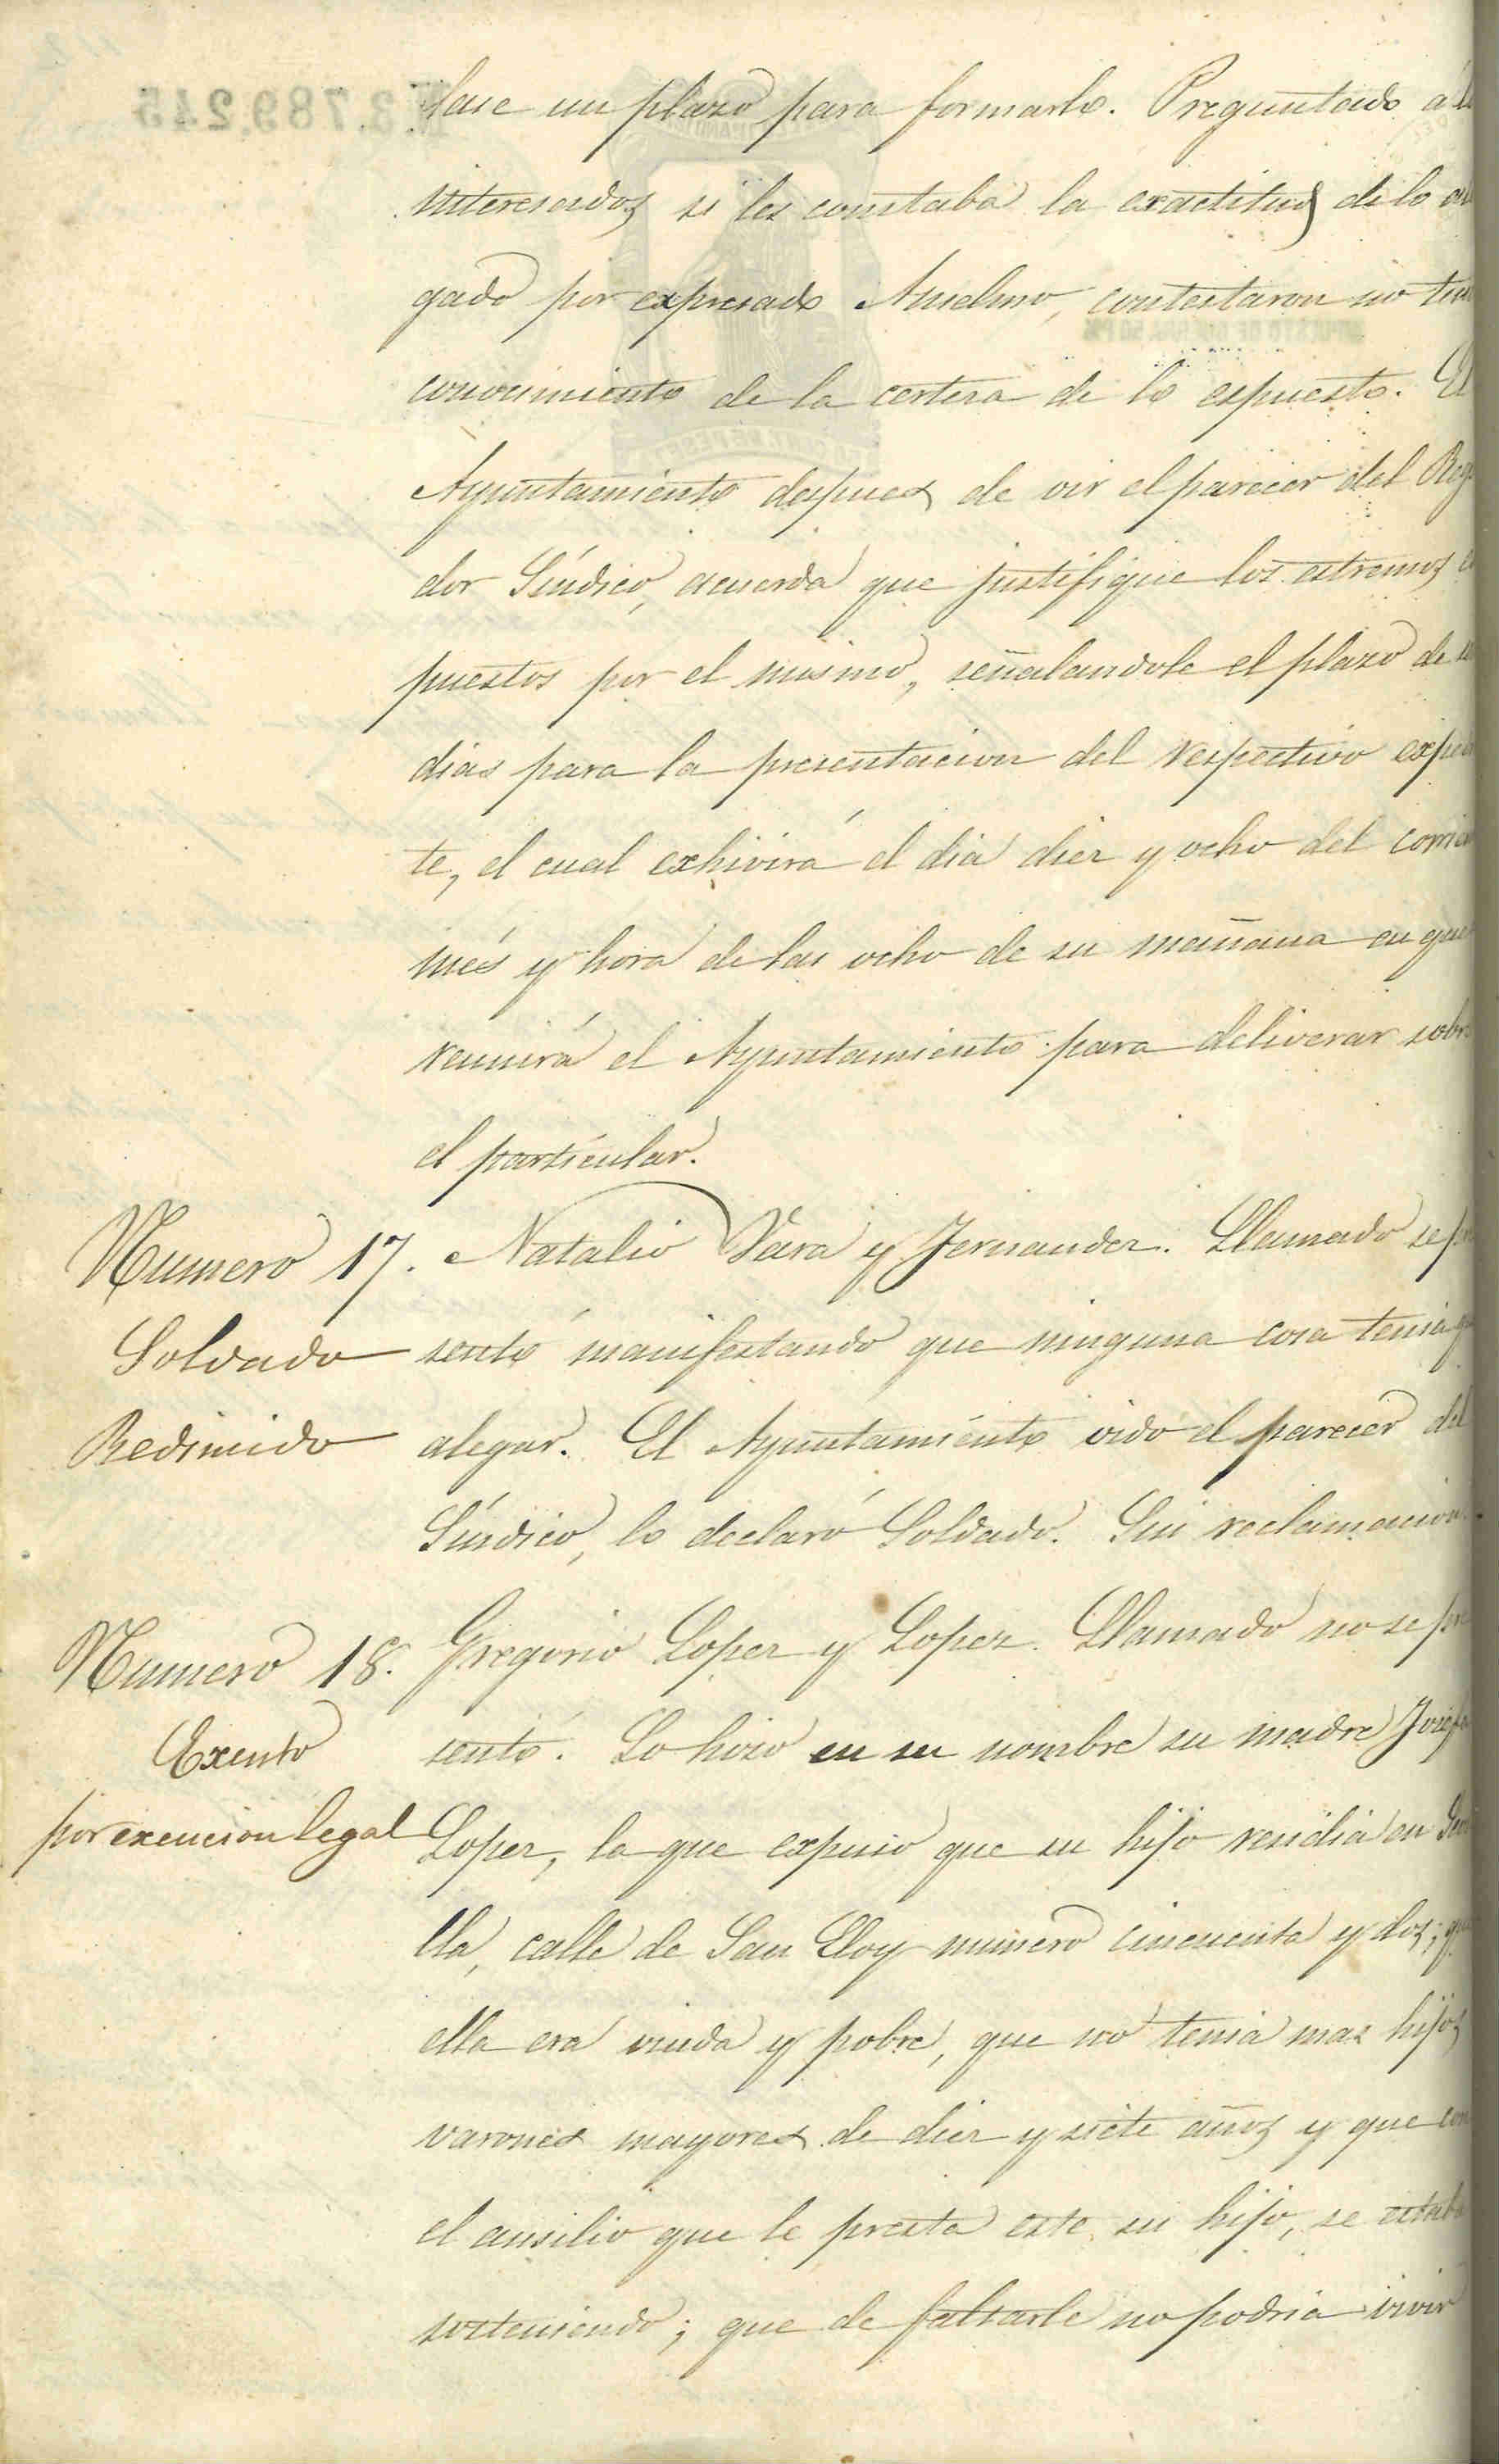 N.3.789.245
lase un plazo para formarlo. Preguntado á
interesados si les constaba la exactitud de lo
gado por expresado Anselmo, contestaron no
conocimiento de la certeza de lo espuesto. El
Ayuntamiento despues de oir el parecer del Reg
dor Síndico, acuerda que justifique los estremos
puestos por el mismo, señalandole el plazo de
dias para la presentacion del respectivo expe
te, el cual exhivirá el dia diez y ocho del corrien
més y hora de las ocho de su mañana en que
reunirá el Ayuntamiento para deliverar sobre
el particular.
Numero 17. Natalio Vara y Fernandez. Llamado se pre
Soldado sentó manifestando que ninguna cosa tenia que
Redimido alegar. El Ayuntamiento oido el parecer del
Síndico, lo declaró Soldado. Sin reclamacion.
Numero 18. Gregorio Lopez y Lopez. Llamado no se pre
Exento sentó. Lo hizo en su nombre su madre Josefa
por exencion legal Lopez, la que expuso que su hijo residia en Sevi
lla, calle de San Eloy numero cincuenta y dos; que
ella era viuda y pobre, que no tenia mas hijos
varones mayores de diez y siete años y que con
el ausilio que le presta este su hijo, se estaba
sosteniendo; que de faltarle no podria vivir